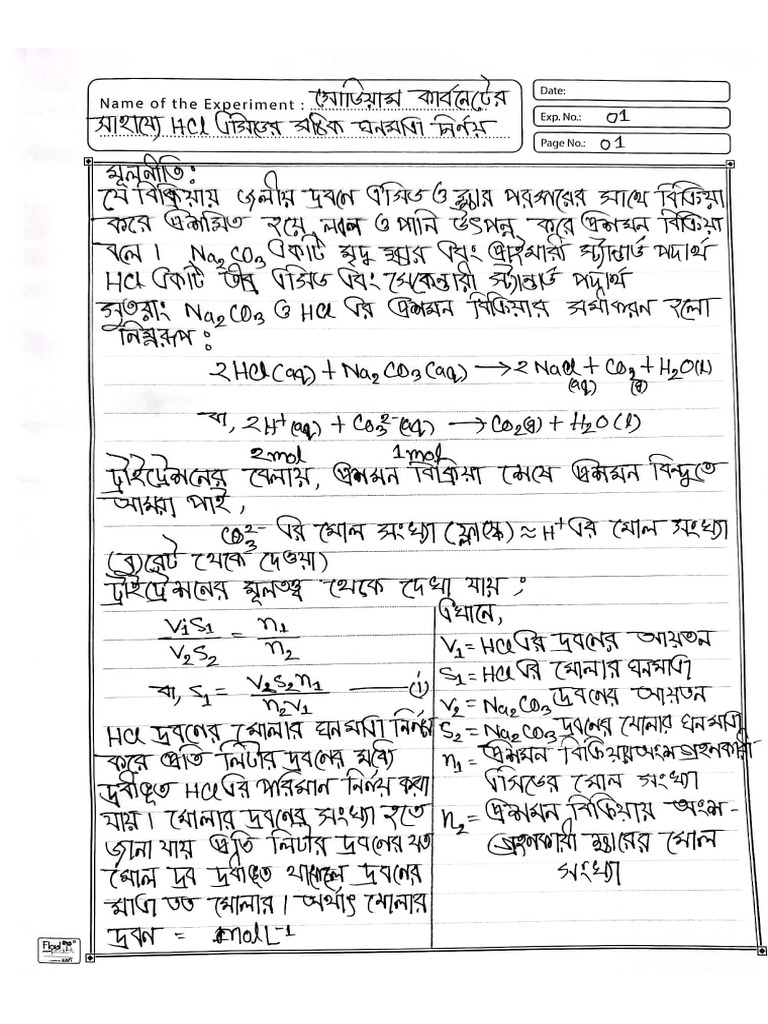 Name of the Experiment : সোডিয়াম কার্বনেটের
সাহায্যে HCl এসিডের সঠিক ঘনমাত্রা নির্ণয়
Date:
Exp. No.: 01
Page No.: 01
মূলনীতি:
যে বিক্রিয়ায় জলীয় দ্রবনে এসিড ও ক্ষার পরস্পরের সাথে বিক্রিয়া
করে প্রশমিত হয়ে লবন ও পানি উৎপন্ন করে প্রশমন বিক্রিয়া
বলে। Na2CO3 একটি মৃদু ক্ষার এবং প্রাইমারী স্ট্যান্ডার্ড পদার্থ
HCl একটি তীব্র এসিড এবং সেকেন্ডারী স্ট্যান্ডার্ড পদার্থ
সুতরাং Na2CO3 ও HCl এর প্রশমন বিক্রিয়ার সমীকরন হলো
নিম্নরূপ:
2HCl(aq) + Na2CO3(aq) ⟶ 2NaCl(aq) + CO2(g) + H2O(l)
বা, 2H+(aq) + CO3^2-(aq) ⟶ CO2(g) + H2O(l)
2mol 1mol
ট্রাইট্রেশনের বেলায়, প্রশমন বিক্রিয়া শেষে প্রশমন বিন্দুতে
আমরা পাই,
CO3^2- এর মোল সংখ্যা (ফ্লাস্কে) ≈ H+ এর মোল সংখ্যা
(ব্যুরেট থেকে দেওয়া)
ট্রাইট্রেশনের মূলতত্ত্ব থেকে দেখা যায়:
V1S1/V2S2 = n1/n2
বা, S1 = V2S2n1/n2V1 —— (i)
HCl দ্রবনের মোলার ঘনমাত্রা নির্ণয়
করে প্রতি লিটার দ্রবনের মধ্যে
দ্রবীভূত HCl এর পরিমান নির্ণয় করা
যায়। মোলার দ্রবনের সংখ্যা হতে
জানা যায় প্রতি লিটার দ্রবনের যত
মোল দ্রব দ্রবীভূত থাকলে দ্রবনের
মাত্রা তত মোলার। অর্থাৎ মোলার
দ্রবন = molL-1
এখানে,
V1 = HCl এর দ্রবনের আয়তন
S1 = HCl এর মোলার ঘনমাত্রা
V2 = Na2CO3 দ্রবনের আয়তন
S2 = Na2CO3 দ্রবনের মোলার ঘনমাত্রা
n1 = প্রশমন বিক্রিয়ায় অংশগ্রহনকারী
এসিডের মোল সংখ্যা
n2 = প্রশমন বিক্রিয়ায় অংশ-
গ্রহনকারী ক্ষারের মোল
সংখ্যা